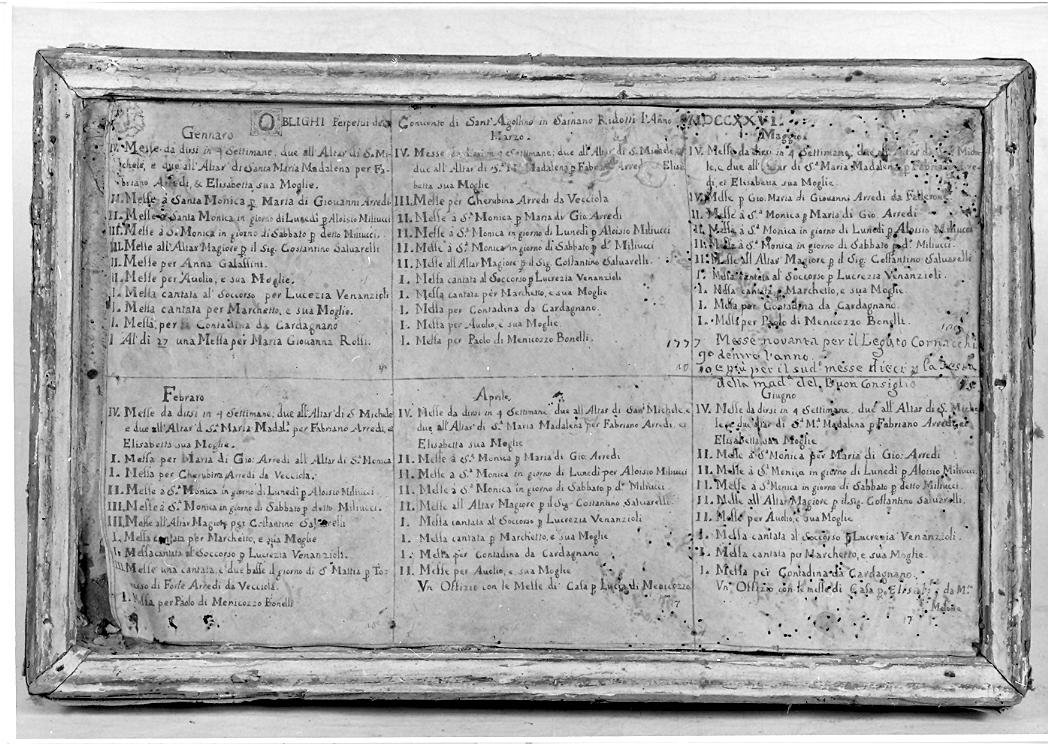 OBLIGHI Perpetui del Convento di Sant'Agostino in Sarnano Ridotti l'Anno MDCCXXVI.
Gennaro
IV. Messe da dirsi in 4 Settimane, due all'Altar' di S. Mi-
chele, e due all'Altar' di Santa Maria Madalena per Fa-
briano Arredi, & Elisabetta sua Moglie.
II. Messe à Santa Monica p Maria di Giovanni Arredi
II. Messe à Santa Monica in giorno di Lunedì p Aloisio Miliucci
III. Messe à S.ª Monica in giorno di Sabbato p detto Miliucci.
III. Messe all'Altar Magiore p il Sig. Costantino Saluarelli
II. Messe per Anna Galassini.
II. Messe per Auolio, e sua Moglie.
I. Messa cantata al Soccorso per Lucrezia Venanzioli
I. Messa cantata per Marchetto, e sua Moglie.
I. Messa per la Contadina da Cardagnano
I Al dì 27 una Messa per Maria Giouanna Rossi.
Febraro
IV. Messe da dirsi in 4 Settimane; due all'Altar' di S. Michele
e due all'Altar' di S.ª Maria Madal.ª per Fabriano Arredi, e
Elisabetta sua Moglie.
I. Messa per Maria di Gio: Arredi all'Altar di S.ª Monica
I. Messa per Cherubina Arredi da Vecciola.
II. Messe a S.ª Monica in giorno di Lunedì p Aloisio Miliucci
III. Messe à S.ª Monica in giorno di Sabbato p detto Miliucci.
III. Messe all'Altar Magiore per Costantino Saluarelli
I. Messa cantata per Marchetto, e sua Moglie
I. Messa cantata al Soccorso p Lucrezia Venanzioli.
III. Messe una cantata, e due basse il giorno di S. Mattia p To-
di Forte Arredi da Vecciola.
I. Messa per Paolo di Menicozzo Bonelli
Marzo.
IV. Messe da dirsi in 4 Settimane; due all'Altar di S. Michele e
due all'Altar di S.ª M.ª Madalena p Fabriano Arredi Elisa-
betta sua Moglie
III. Messe per Cherubina Arredi da Vecciola
II. Messe à S.ª Monica p Maria di Gio: Arredi
II. Messe à S.ª Monica in giorno di Lunedì p Aloisio Miliucci
II. Messe à S.ª Monica in giorno di Sabbato p d.º Miliucci
II. Messe all'Altar Magiore p il Sig. Costantino Saluarelli.
I. Messa cantata al Soccorso p Lucrezia Venanzioli
I. Messa cantata per Marchetto, e sua Moglie
I. Messa per Contadina da Cardagnano.
I. Messa per Auolio, e sua Moglie
I. Messa per Paolo di Menicozzo Bonelli.
Aprile
IV. Messe da dirsi in 4 Settimane due all'Altar di San Michele, e
due all'Altar di S.ª Maria Madalena per Fabriano Arredi, et
Elisabetta sua Moglie
II. Messe à S.ª Monica p Maria di Gio: Arredi
II. Messe a S.ª Monica in giorno di Lunedì per Aloisio Miliucci
II. Messe à S.ª Monica in giorno di Sabbato p d.º Miliucci
II. Messe all'Altar Magiore p il Sig. Costantino Saluarelli
I. Messa cantata al Soccorso p Lucrezia Venanzioli
I. Messa cantata p Marchetto, e sua Moglie
I. Messa per Contadina da Cardagnano
II. Messe per Auolio, e sua Moglie
Vn Offizio con le Messe di Casa p Lucia di Menicozzo
Maggio
IV. Messe da dirsi in 4 Settimane, due all'Altar di S. Miche-
le, e due all'Altar di S.ª Maria Madalena p Fabriano Arre-
di, et Elisabetta sua Moglie.
IV. Messe p Gio: Maria di Giovanni Arredi da
II. Messe à S.ª Monica p Maria di Gio. Arredi
II. Messe à S.ª Monica in giorno di Lunedì p Aloisio Miliucci
II. Messe à S.ª Monica in giorno di Sabbato p d.º Miliucci.
II. Messe all'Altar Magiore p il Sig. Costantino Saluarelli
I. Messa cantata al Soccorso p Lucrezia Venanzioli.
I. Messa cantata p Marchetto, e sua Moglie
I. Messa per Contadina da Cardagnano.
I. Messa per Paolo di Menicozzo Bonelli.
1777 Messe novanta per il Legato Cornacchi
90 dentro l'anno
e più per il sud.º messe dieci p la Festa
della mad.ª del Buon Consiglio
Giugno
IV. Messe da dirsi in 4 Settimane, due all'Altar di S. Miche-
le e due all'Altar di S.ª M.ª Madalena p Fabriano Arredi, et
Elisabetta sua Moglie
II. Messe à S.ª Monica per Maria di Gio: Arredi
II. Messe à S.ª Monica in giorno di Lunedì p Aloisio Miliucci
II. Messe a S.ª Monica in giorno di Sabbato p detto Miliucci.
II. Messe all'Altar Magiore p il Sig. Costantino Saluarelli.
II. Messe per Auolio, e sua Moglie
I. Messa cantata al Soccorso p Lucrezia Venanzioli.
I. Messa cantata per Marchetto, e sua Moglie.
I. Messa per Contadina da Cardagnano.
Vn' Offizio con le messe di Casa p da M.
17